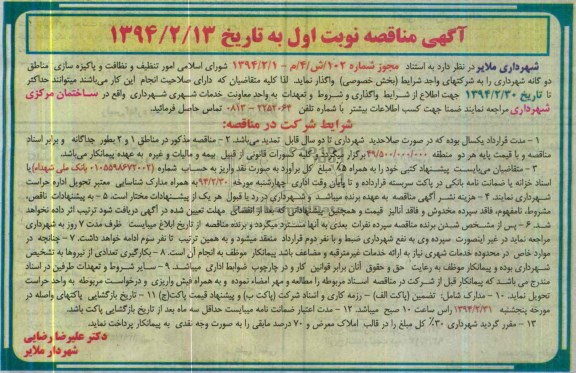 آگهی مناقصه نوبت اول به تاریخ ۱۳۹۴/۲/۱۳
شهرداری ملایر در نظر دارد به استناد مجوز شماره ۱۰۲/ش/۴/م - ۱۳۹۴/۲/۱ شورای اسلامی امور تنظیف و نظافت و پاکیزه سازی مناطق
دو گانه شهرداری را به شرکتهای واجد شرایط (بخش خصوصی) واگذار نماید. لذا کلیه متقاضیان که دارای صلاحیت انجام این کار می‌باشند میتوانند حداکثر
تا تاریخ ۱۳۹۴/۲/۳۰ جهت اطلاع از شرایط واگذاری و شروط و تعهدات به واحد معاونت خدمات شهری شهرداری واقع در ساختمان مرکزی
شهرداری مراجعه نمایند ضمنا جهت کسب اطلاعات بیشتر با شماره تلفن ۲۲۵۲۰۶۳-۰۸۱۳ تماس حاصل فرمائید.
شرایط شرکت در مناقصه:
۱ - مدت قرارداد یکسال بوده که در صورت صلاحدید شهرداری تا دو سال قابل تمدید می‌باشد ۲ - مناقصه مذکور در مناطق ۱ و ۲ بطور جداگانه و برابر اسناد
مناقصه و با قیمت پایه هر دو منطقه ۴۹/۵۰۰/۰۰۰/۰۰۰ برگزار میگردد و کلیه کسورات قانونی از قبیل بیمه و مالیات و غیره به عهده پیمانکار می‌باشد.
۳ - متقاضیان می‌بایست پیشنهاد کتبی خود را به همراه ۵٪ مبلغ کل برآورد به صورت نقد واریز به حساب شماره (۰۱۰۵۵۹۸۶۷۲۰۰۲ بانک ملی شهداء) یا
اسناد خزانه یا ضمانت نامه بانکی در پاکت سربسته قرارداده و تا پایان وقت اداری چهارشنبه مورخه ۹۴/۲/۳۰ به همراه مدارک شناسایی معتبر تحویل اداره حراست
شهرداری نمایند ۴ - هزینه نشر آگهی مناقصه به عهده برنده میباشد و شهرداری در رد یا قبول هر یک از پیشنهادات مختار است. ۵ - به پیشنهادات ناقص،
مشروط، نامفهوم، فاقد سپرده مخدوش و فاقد آنالیز قیمت و همچنین پیشنهاداتی که بعد از انقضای مهلت تعیین شده در آگهی دریافت شود ترتیب اثر داده نخواهد
شد ۶ - پس از مشخص شدن برنده مناقصه سپرده نفرات بعدی به آنها مسترد میگردد و برنده مناقصه از تاریخ ابلاغ میبایست ظرف مدت ۷ روز به شهرداری
مراجعه نماید در غیر اینصورت سپرده وی به نفع شهرداری ضبط و با نفر دوم قرارداد منعقد میشود و به همین ترتیب تا نفر سوم ادامه خواهد داشت. ۷ - چنانچه در
موارد خاص در محدوده خدمات شهری نیاز به ارائه خدمات غیرمترقبه و مضاعف باشد پیمانکار موظف به انجام آن است. ۸ - بکارگیری تعدادی از نیروها به تشخیص
شهرداری بوده و پیمانکار موظف به رعایت حق و حقوق آنان برابر قوانین کار و در چارچوب ضوابط اداری میباشد. ۹ - سایر شروط و تعهدات طرفین در اسناد
مندرج می باشد که پیمانکار قبل از شرکت در مناقصه اسناد مربوطه را مطالعه و مهر امضاء نموده و به همراه فیش واریزی و درخواست مربوطه به واحد حراست
تحویل نماید. ۱۰ - مدارک شامل: تضمین (پاکت الف) – رزمه کاری و اسناد شرکت (پاکت ب) و پیشنهاد قیمت پاکت(ج) ۱۱ - تاریخ بازگشایی پاکتهای واصله در
مورخه پنجشنبه ۱۳۹۴/۲/۳۱ راس ساعت ۱۰ صبح میباشد. ۱۲ - مدت اعتبار ضمانت نامه میبایست حداقل سه ماه بعد از تاریخ بازگشایی پاکت باشد.
۱۳ - مقرر گردید شهرداری ۳۰٪ کل مبلغ را در قالب املاک معرض و ۷۰ درصد مابقی را به صورت وجه نقدی به پیمانکار پرداخت نماید.
دکتر علیرضا رضایی
شهردار ملایر